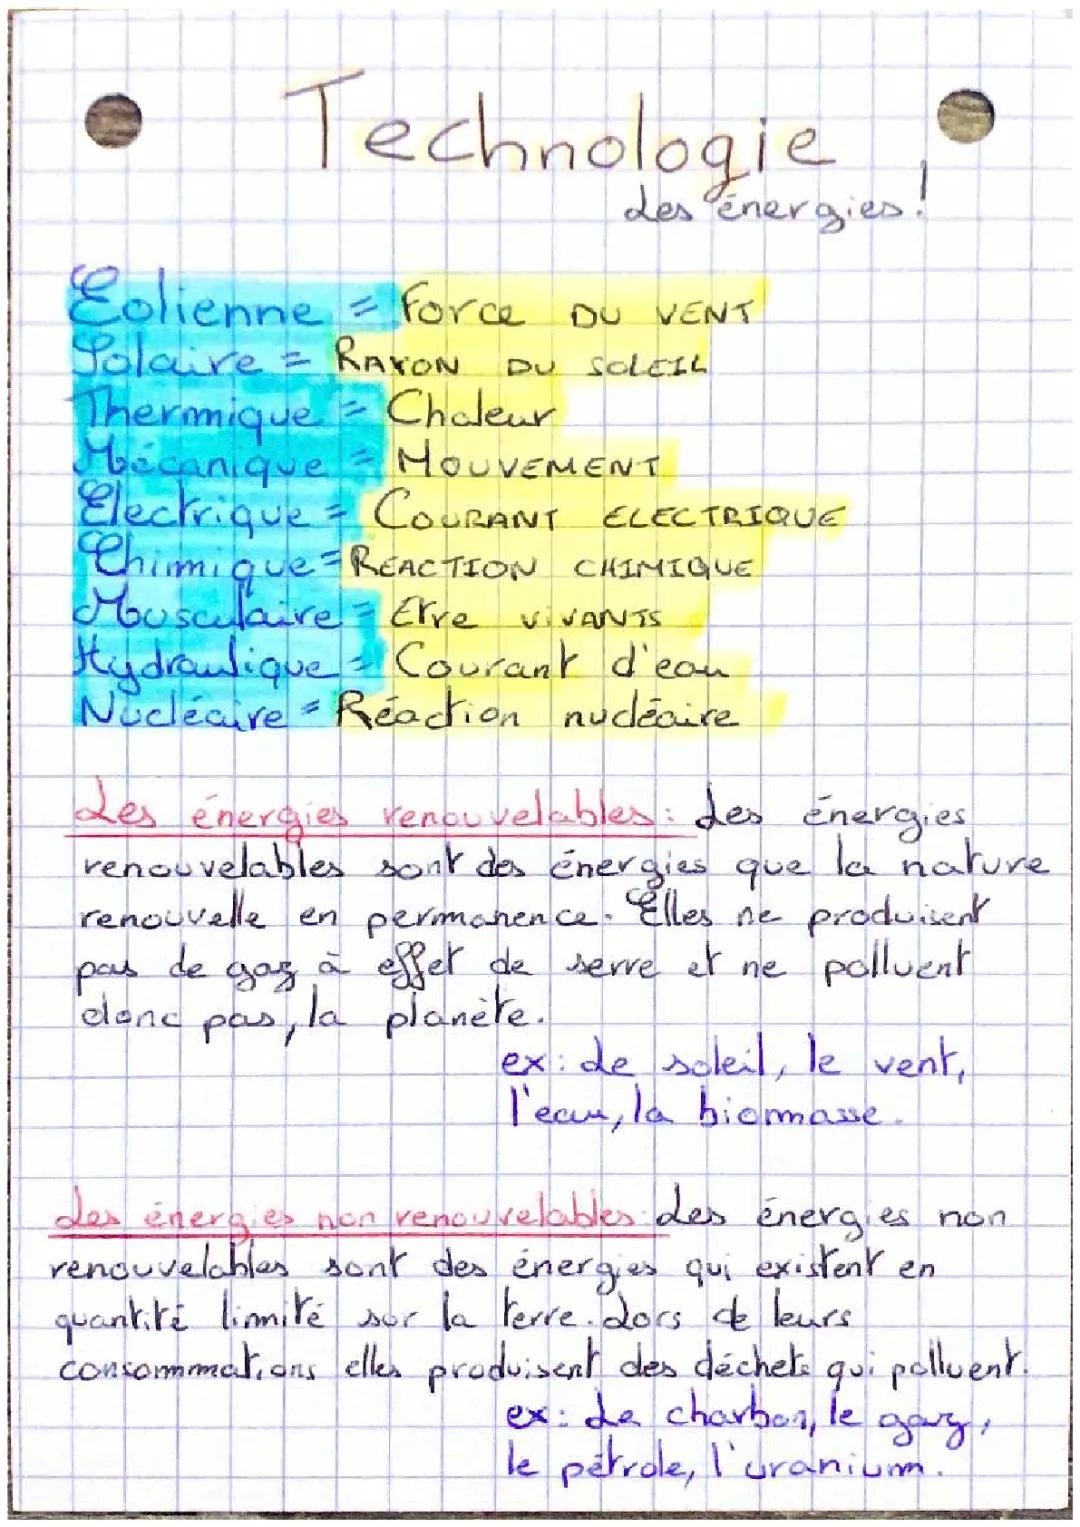 Technologie
Les énergies!
Eolienne = Force DU VENT
Solaire = RAYON DU SOLEIL
Thermique = Chaleur
Mécanique = MOUVEMENT
Electrique = COURANT ELECTRIQUE
Chimique = REACTION CHIMIQUE
Musculaire = Etre VIVANTS
Hydraulique = Courant d'eau
Nucléaire = Réaction nucléaire
Les énergies renouvelables: Les énergies
renouvelables sont des énergies que la nature
renouvelle en permanence. Elles ne produisent
pas de gaz à effet de serre et ne polluent
donc pas, la planète.
ex: Le soleil, le vent,
l'eau, la biomasse.
Les énergies non renouvelables: Les énergies non
renouvelables sont des énergies qui existent en
quantité limité sur la terre. Lors de leurs
consommations elles produisent des déchets qui polluent.
ex: Le charbon, le gaz,
le pétrole, l'uranium.